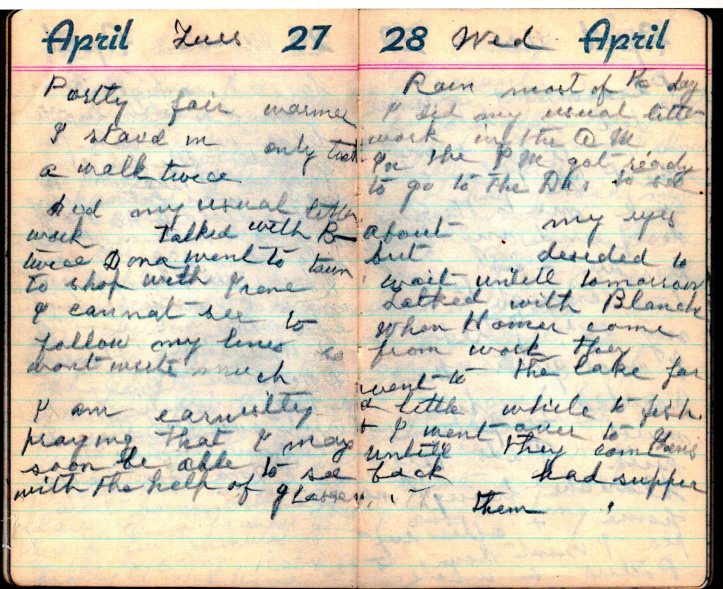 April Tues 27
Partly fair warmer
I staed in only took
a walk twice
did my usual little
work. Talked with B
twice Dona went to town
to shop with Irene
I cannot see to
follow my lines so
wont write much
I am earnistly
praying that I may
soon be able to see
with the help of glasses.
28 Wed April
Rain most of the day
I did my usual little
work in the A M
In the P M got ready
to go to the Drs. to see
about my eyes
but decided to
wait untill tomorrow
Talked with Blanch
When Homer come
from work they
went to the lake for
a little while to fish
I went over to
untill they come
back had supper
them